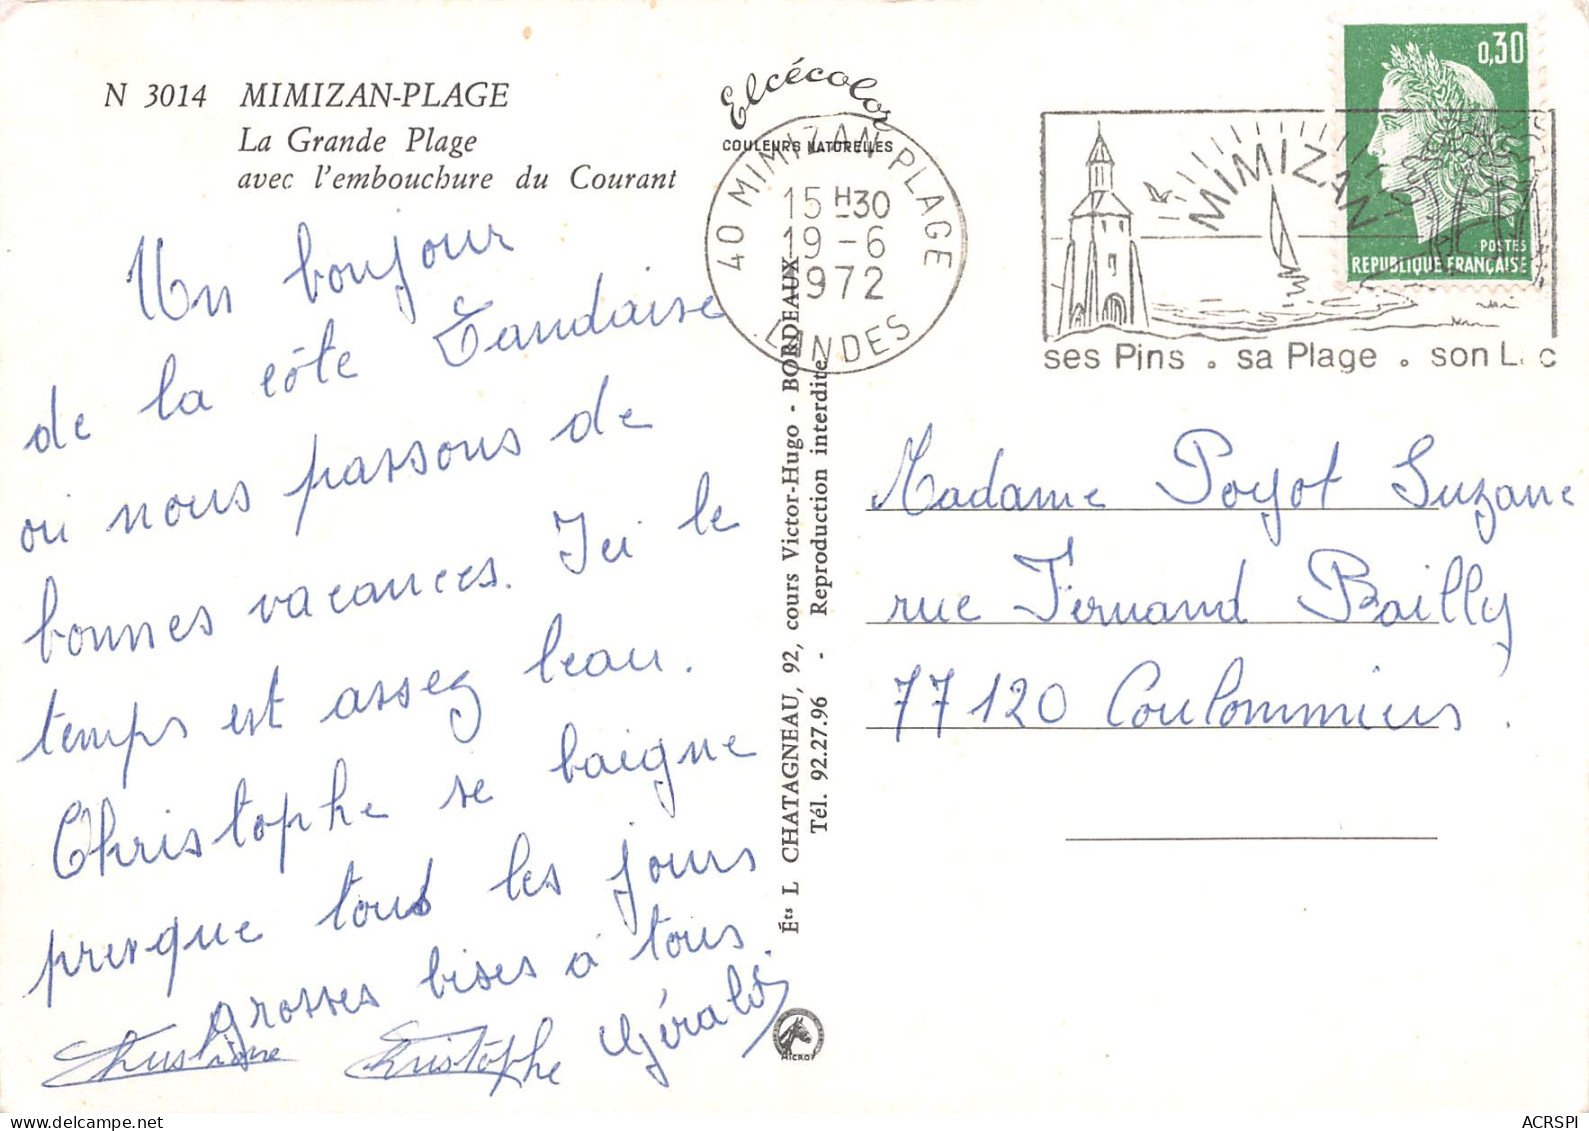 N 3014 MIMIZAN-PLAGE
La Grande Plage
avec l'embouchure du Courant
Elcécolor
COULEURS NATURELLES
40 MIMIZAN PLAGE
15 H30
19 - 6
1972
LANDES
MIMIZAN
ses Pins . sa Plage . son L c
0,30
POSTES
REPUBLIQUE FRANÇAISE
Un bonjour
de la côte Landaise
où nous passons de
bonnes vacances. Ici le
temps est assez beau.
Christophe se baigne
presque tous les jours
grosses bises à tous.
Christiane Christophe Gérald
Éts L CHATAGNEAU, 92, cours Victor-Hugo - BORDEAUX
Tél. 92.27.96 - Reproduction interdite
MICRO
Madame Poyot Suzane
rue Fernand Bailly
77120 Coulommiers.
ACRSPI